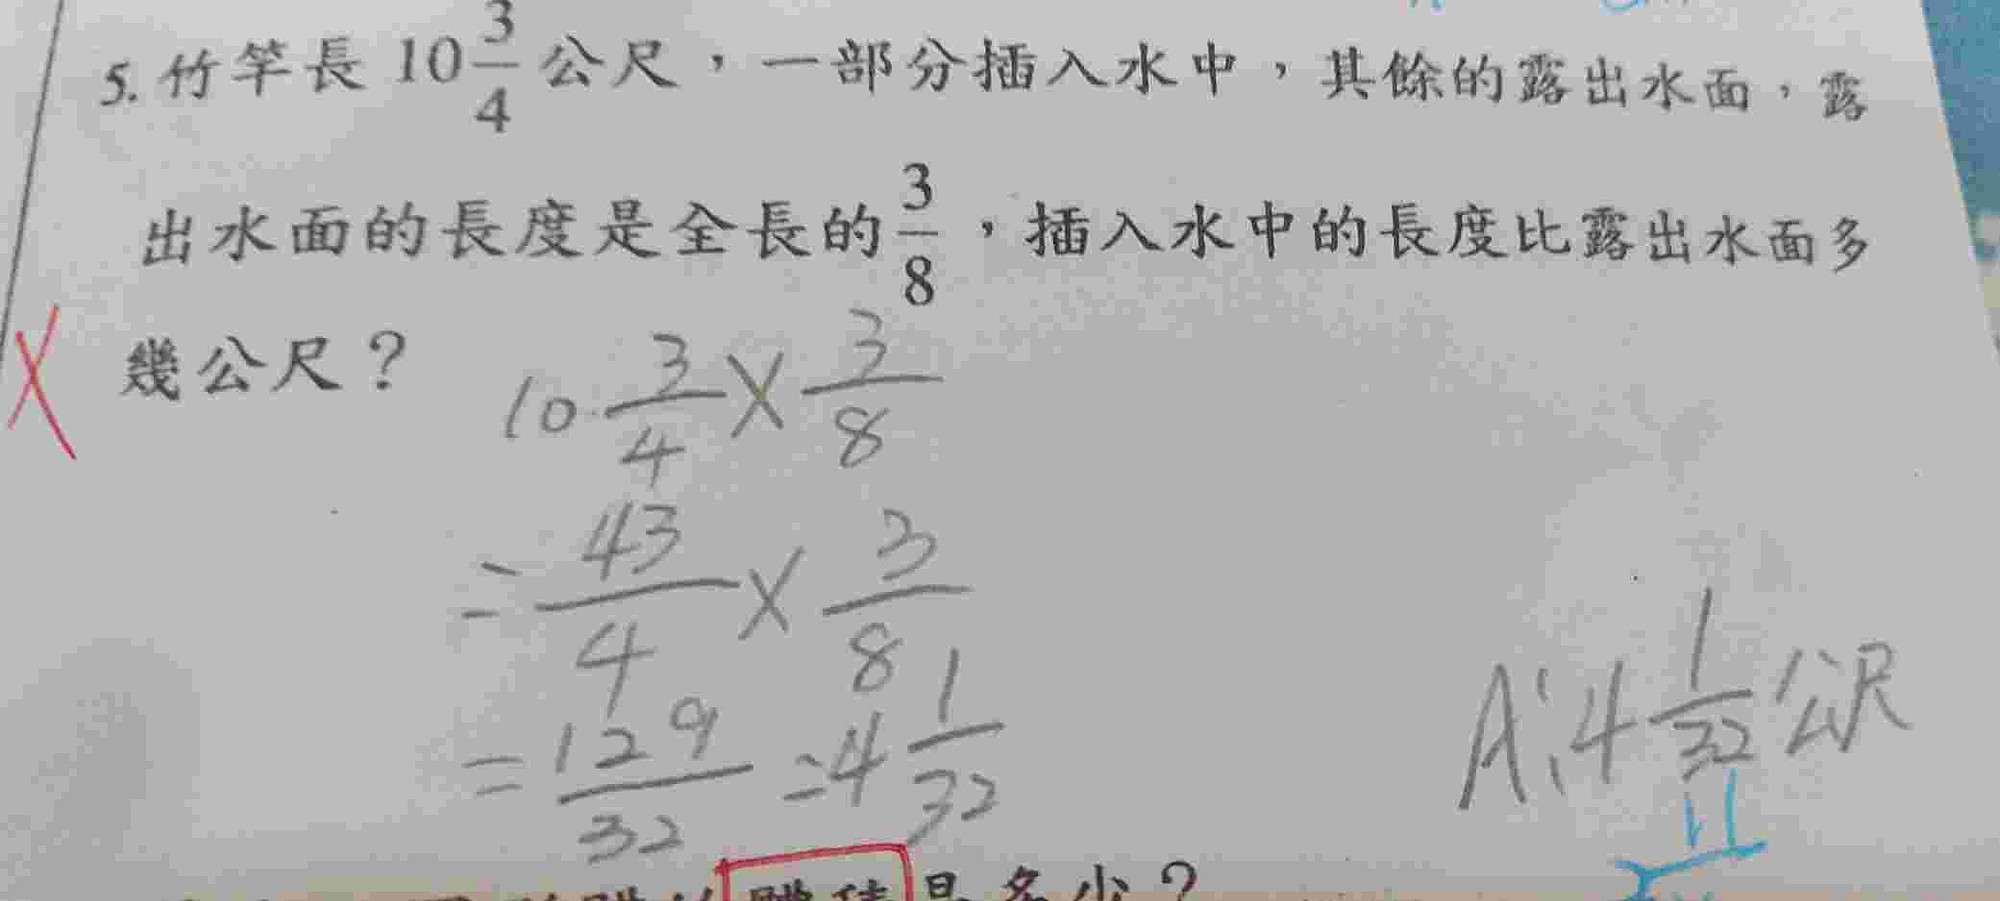 5. 竹竿長 10 3/4 公尺，一部分插入水中，其餘的露出水面，露
出水面的長度是全長的 3/8，插入水中的長度比露出水面多
幾公尺？
10 3/4 × 3/8
= 43/4 × 3/8
= 129/32 = 4 1/32
A: 4 1/32 公尺
是多少？